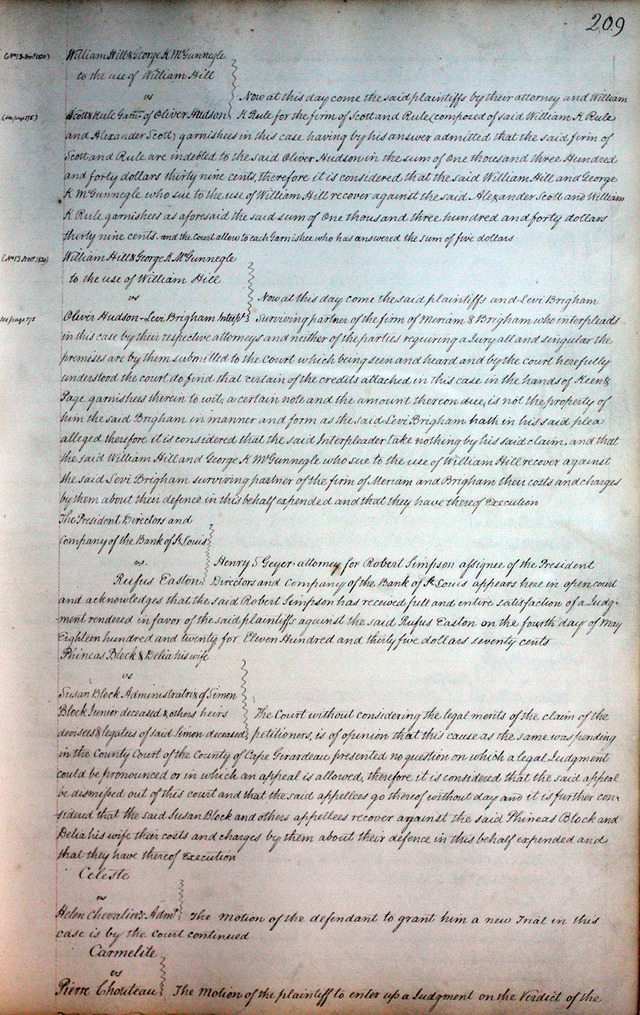 209
William Hill & George K McGunnegle
to the use of William Hill
vs Now at this day come the said plaintiffs by their attorney and William
Scott & Rule Garns. of Oliver Hudson K Rule for the firm of Scott and Rule, composed of said William K Rule
and Alexander Scott, garnishees in this case having by his answer admitted that the said firm of
Scott and Rule are indebted to the said Oliver Hudson in the sum of One thousand three Hundred
and forty dollars thirty nine cents, therefore it is considered that the said William Hill and George
K McGunnegle who sue to the use of William Hill recover against the said Alexander Scott and William
K Rule garnishees as aforesaid the said sum of One thousand three hundred and forty dollars
thirty nine cents. and the court allow to each Garnishee who has answered the sum of five dollars
William Hill & George K. McGunnegle
to the use of William Hill
vs Now at this day come the said plaintiffs and Levi Brigham
Oliver Hudson - Levi Brigham Interpr. Surviving partner of the firm of Meriam & Brigham who interpleads
see page 175
in this case by their respective attorneys and neither of the parties requiring a Jury all and singular the
premises are by them submitted to the Court which being seen and heard and by the court herefully
understood the court do find that certain of the credits attached in this case in the hands of Keen &
Page garnishees therein to wit, a certain note and the amount thereon due, is not the property of
him the said Brigham in manner and form as the said Levi Brigham hath in his said plea
alleged therefore it is considered that the said Interpleader take nothing by his said claim, and that
the said William Hill and George K McGunnegle who sue to the use of William Hill recover against
the said Levi Brigham surviving partner of the firm of Meriam and Brigham their costs and charges
by them about their defence in this behalf expended and that they have thereof Execution
The President Directors and
Company of the Bank of St Louis
vs. Henry S Geyer attorney for Robert Simpson assignee of the President
Rufus Easton Directors and Company of the Bank of St Louis appears here in open court
and acknowledges that the said Robert Simpson has received full and entire satisfaction of a Judg-
ment rendered in favor of the said plaintiffs against the said Rufus Easton on the fourth day of May
Eighteen hundred and twenty for Eleven Hundred and thirty five dollars seventy cents
Phineas Block & Delia his wife
vs
Susan Block Administratrix of Simon
Block Junior deceased & others heirs The Court without considering the legal merits of the claim of the
devisees & legatees of said Simon deceased petitioners, is of opinion that this cause as the same was pending
in the County Court of the County of Cape Girardeau, presented no question on which a legal Judgment
could be pronounced or in which an appeal is allowed, therefore it is considered that the said appeal
be dismissed out of this court and that the said appellees go thereof without day and it is further con-
sidered that the said Susan Block and others appellees recover against the said Phineas Block and
Delia his wife their costs and charges by them about their defence in this behalf expended and
that they have thereof Execution
Celeste
vs
Helen Chevalier's Admr. The motion of the defendant to grant him a new Trial in this
case is by the Court continued
Carmelite
vs
Pierre Chouteau The Motion of the plaintiff to enter up a Judgment on the Verdict of the